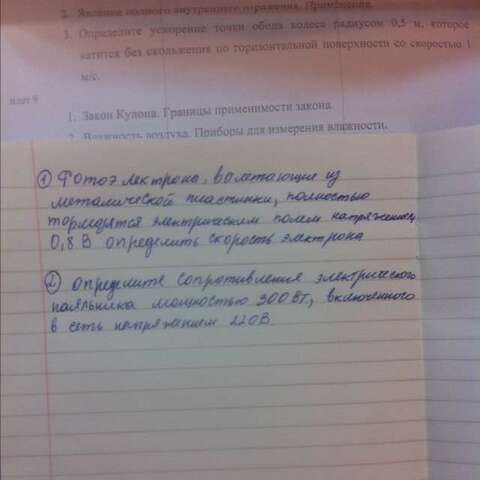 2. Явление полного внутреннего отражения. Применения.
3. Определите ускорение точки обода колеса радиусом 0,5 м, которое
катится без скольжения по горизонтальной поверхности со скоростью 1
м/с.
илет 9
1. Закон Кулона. Границы применимости закона.
2. Влажность воздуха. Приборы для измерения влажности.
① Фотоэлектрона, вылетающие из
металической пластинки, полностью
тормозятся электрическим полем напряжением
0,8 В определить скорость электрона
② Определите сопротивления электрического
паяльника мощностью 300 Вт, включенного
в сеть напряжением 220 В